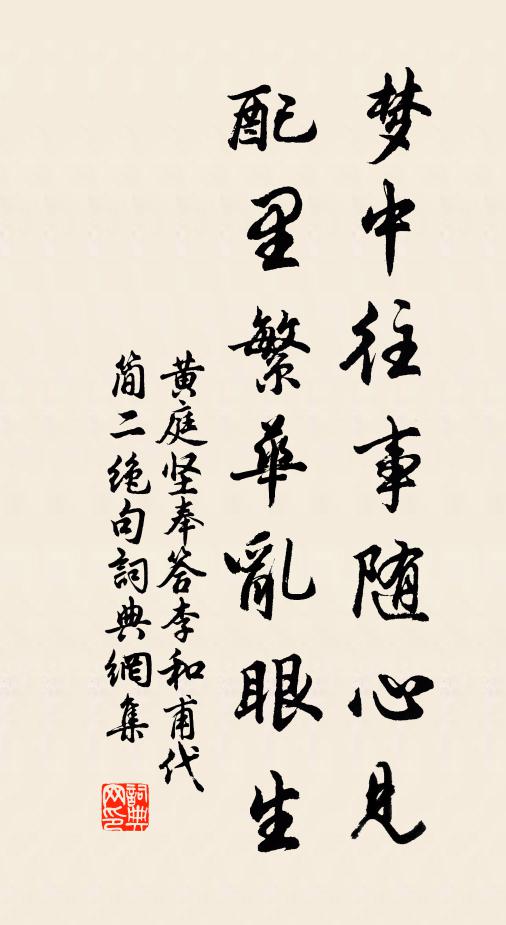 梦中往事随心见
配里繁華亂眼生
黄庭坚奉答李和甫代
简二绝句詞典網集
詞典网印